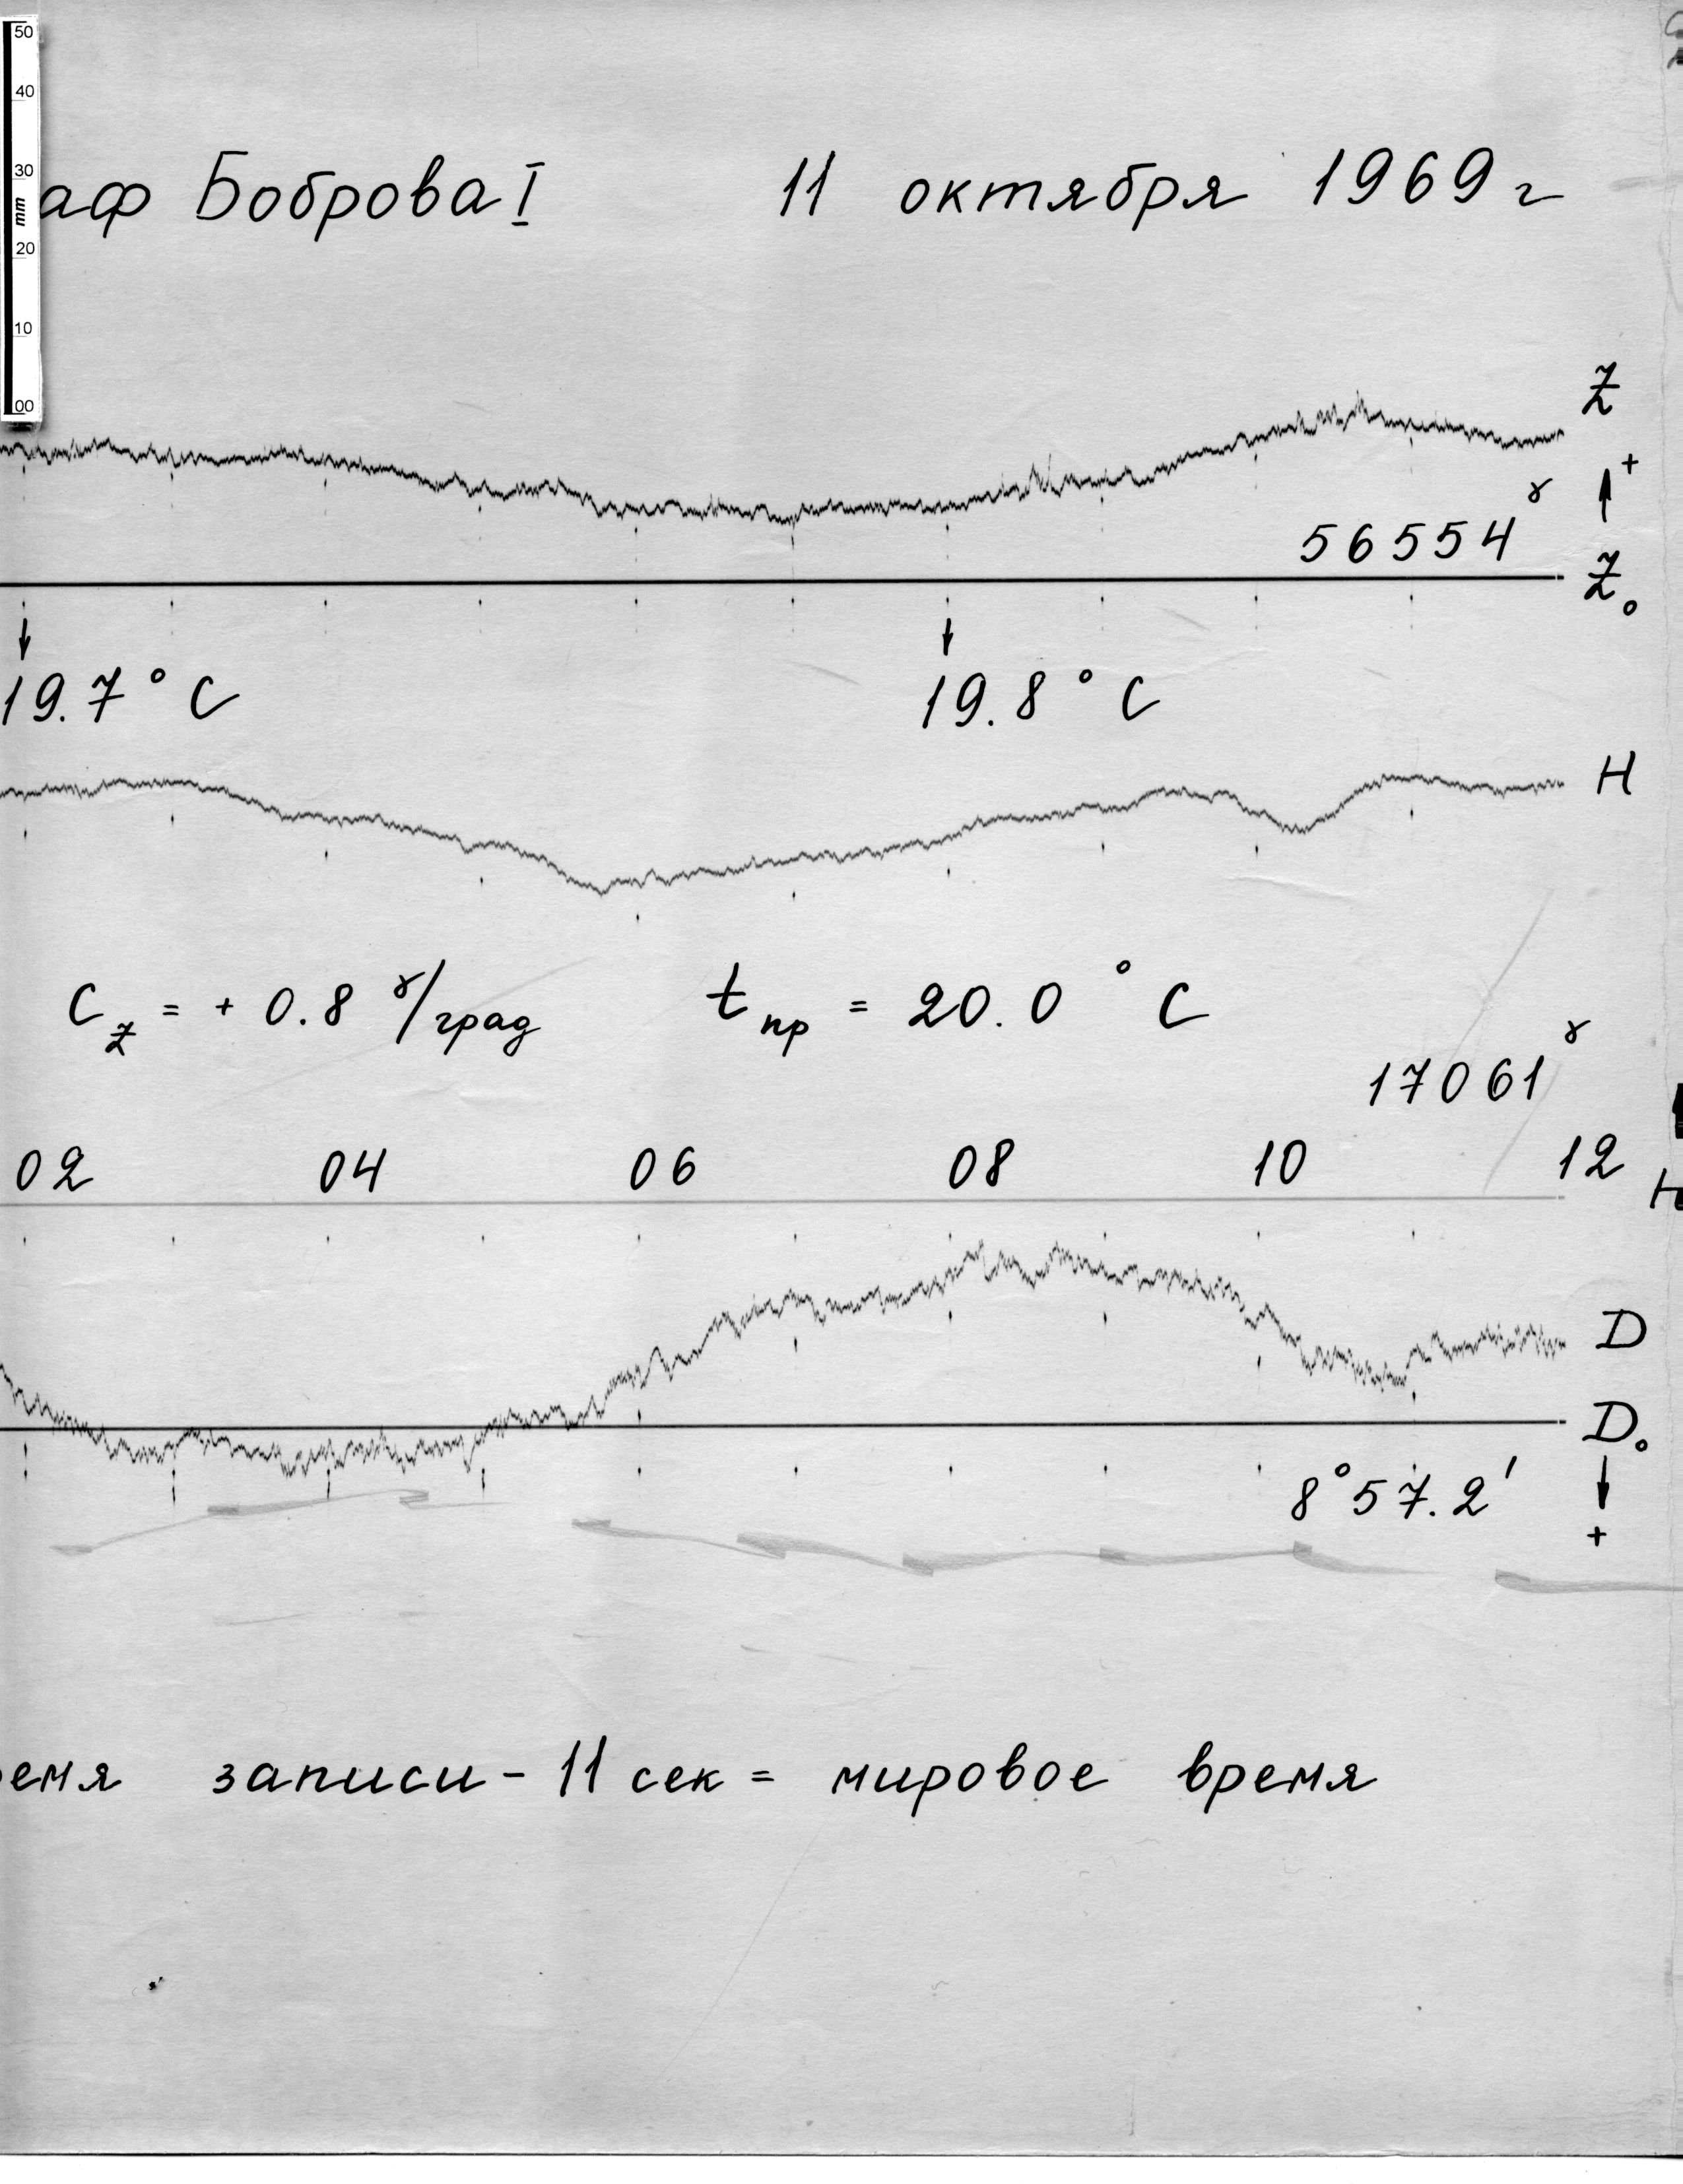 50
40
30
mm
20
10
00
аф Боброва I 11 октября 1969 г
Z
+
56554 γ
Z₀
19.7 °C 19.8 °C
H
C_Z = + 0.8 γ/град t_пр = 20.0 °C
17061 γ
02 04 06 08 10 12
D
D₀
8°57.2′
+
емя записи - 11 сек = мировое время